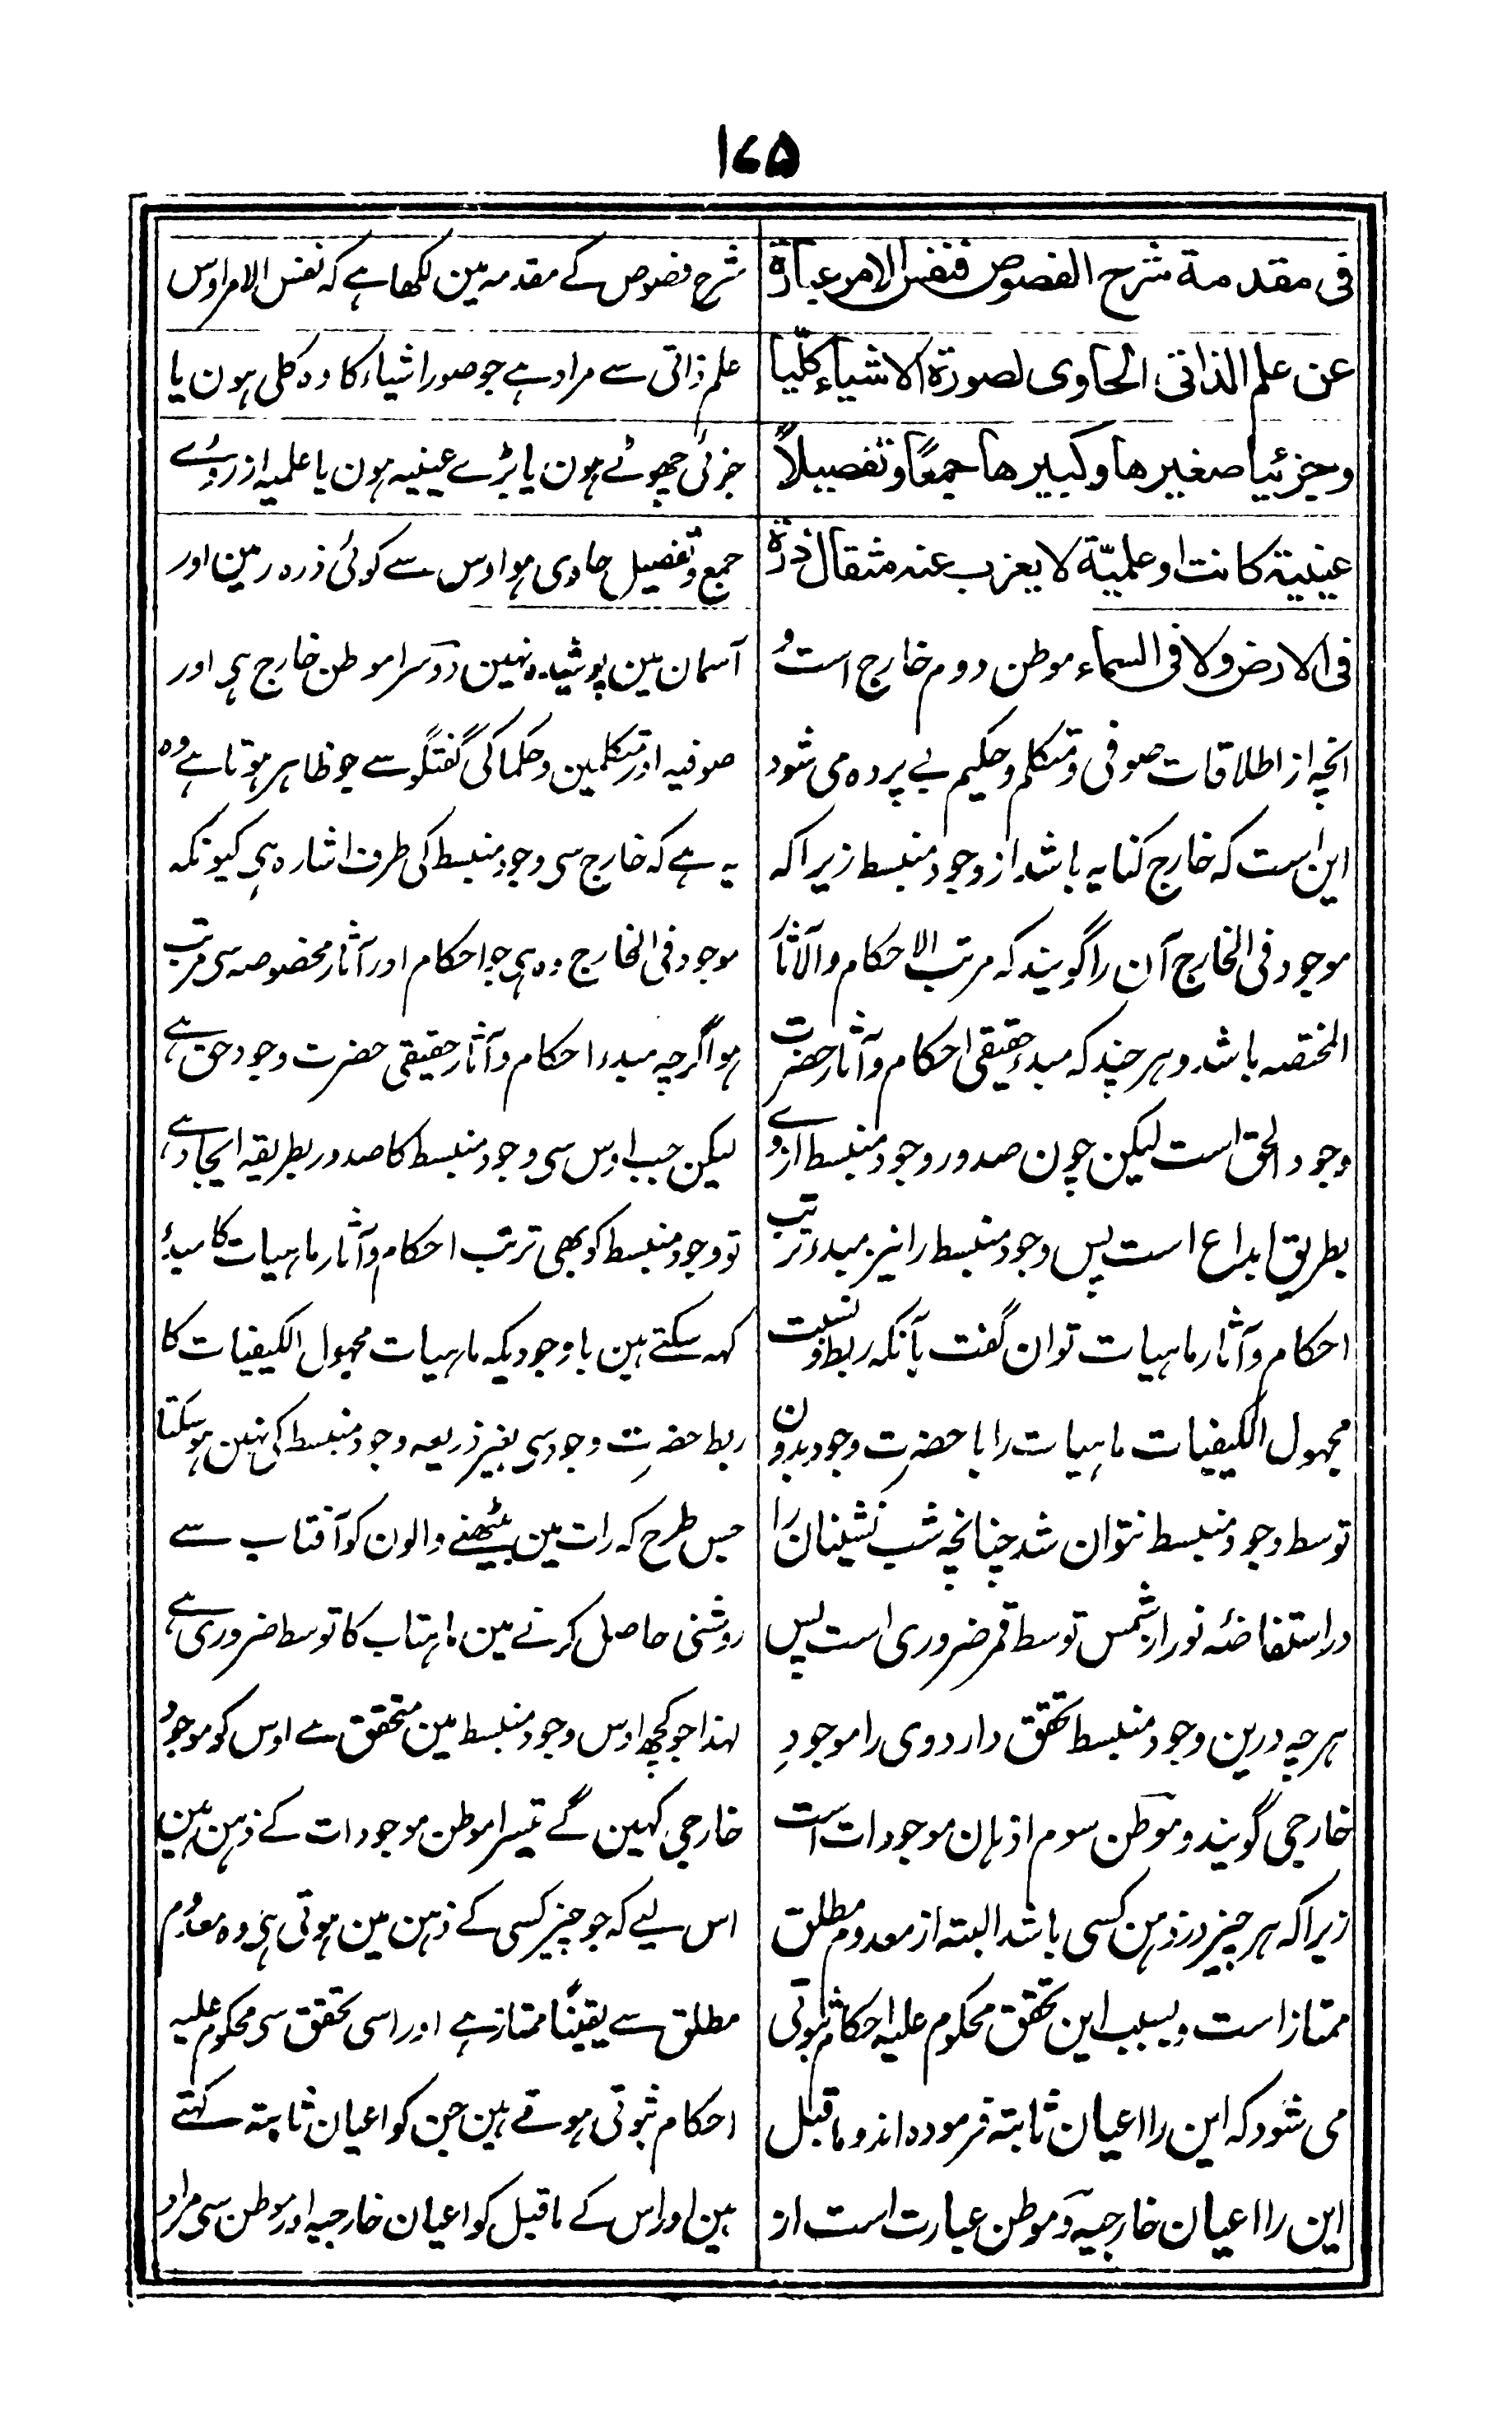 ۱۷۵
فی مقدمة شرح الفصوص فنفس الامر عبارة
عن علم الذاتی الحاوی لصورة الاشیاء کلّیا
و جزئیا صغیرها و کبیرها جمعًا و تفصیلاً
عینیة کانت او علمیّة لا یعزب عنه مثقال ذرة
فی الارض ولا فی السماء موطن دوم خارج است و
انچه از اطلاقات صوفی و متکلم و حکیم بے پرده می شود
این است که خارج کنایه باشد از وجود منبسط زیراکه
موجود فی الخارج آن را گویند که مرتب الاحکام والآثار
المختصه باشد و هر چند که مبدء حقیقی احکام و آثار حضرت
وجود الحق است لیکن چون صدور وجود منبسط ازوے
بطریق ابداع است پس وجود منبسط را نیز مبدء ترتب
احکام و آثار ماهیات توان گفت بآنکه ربط و نسبت
مجهول الکیفیات ماهیات را با حضرت وجود بدون
توسط وجود منبسط نتوان شد چنانچه شب نشینان را
در استفاضهٔ نور از شمس توسط قمر ضروری است پس
هر چه درین وجود منبسط تحقق دارد وی را موجودِ
خارجی گویند و موطن سوم اذهان موجودات است
زیراکه هر چیز در ذهن کسی باشد البته از معدوم مطلق
ممتاز است و بسبب این تحقق محکوم علیه احکام ثبوتی
می شود که این را اعیان ثابته فرموده اند و ماقبل
این را اعیان خارجیه و موطن عبارت است از
شرح فصوص کے مقدمہ مین لکھا ہے کہ نفس الامر اوس
علم ذاتی سے مراد ہے جو صور اشیاء کا وہ کلی ہون یا
جزئی چھوٹے ہون یا بڑے عینیہ ہون یا علمیہ از روے
جمع و تفصیل حاوی ہو اوس سے کوئی ذرہ زمین اور
آسمان مین پوشیدہ نہین دوسرا موطن خارج ہی اور
صوفیہ اور متکلمین و حکما کی گفتگو سے جو ظاہر ہوتا ہے وہ
یہ ہے کہ خارج سی وجود منبسط کی طرف اشارہ ہی کیونکہ
موجود فی الخارج وہ ہی جو احکام اور آثار مخصوصہ سی مرتب
ہو اگرچہ مبدء احکام و آثار حقیقی حضرت وجود حق ہے
لیکن جب اوس سی وجود منبسط کا صدور بطریقہ ایجاد ہے
تو وجود منبسط کو بھی ترتب احکام و آثار ماہیات کا مبدء
کہہ سکتے ہین باوجودیکہ ماہیات مجہول الکیفیات کا
ربط حضرت وجود سی بغیر ذریعہ وجود منبسط کی نہین ہو سکتا
جس طرح کہ رات مین بیٹھنے والون کو آفتاب سے
روشنی حاصل کرنے مین ماہتاب کا توسط ضروری ہے
لہذا جو کچھ اوس وجود منبسط مین متحقق ہے اوس کو موجود
خارجی کہین گے تیسرا موطن موجودات کے ذہن ہین
اس لیے کہ جو چیز کسی کے ذہن مین ہوتی ہی وہ معدوم
مطلق سے یقینًا ممتاز ہے اور اسی تحقق سی محکوم علیہ
احکام ثبوتی ہوتے ہین جن کو اعیان ثابتہ کہتے
ہین اور اس کے ماقبل کو اعیان خارجیہ اور موطن سی مراد